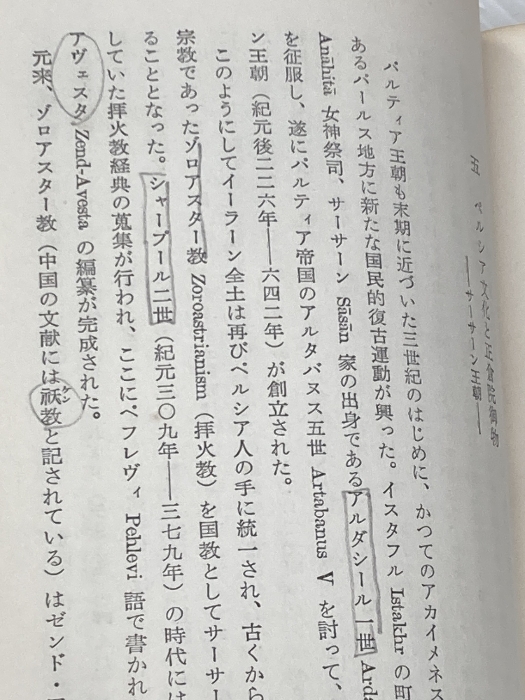 五　ペルシア文化と正倉院御物
――サーサーン王朝――
パルティア王朝も末期に近づいた三世紀のはじめに、かつてのアカイメネス
あるパールス地方に新たな国民的復古運動が興った。イスタフル Istakhr の町
Anāhitā 女神祭司、サーサーン Sāsān 家の出身であるアルダシール一世 Arda
を征服し、遂にパルティア帝国のアルタバヌス五世 Artabanus V を討って、
ン王朝（紀元後二二六年――六四二年）が創立された。
このようにしてイーラーン全土は再びペルシア人の手に統一され、古くから
宗教であったゾロアスター教 Zoroastrianism（拝火教）を国教としてサーサー
ることとなった。シャープール二世（紀元三〇九年――三七九年）の時代には
していた拝火教経典の蒐集が行われ、ここにペフレヴィ Pehlevi 語で書かれ
アヴェスタ Zend-Avesta の編纂が完成された。
元来、ゾロアスター教（中国の文献には祆教と記されている）はゼンド・ア
ケン